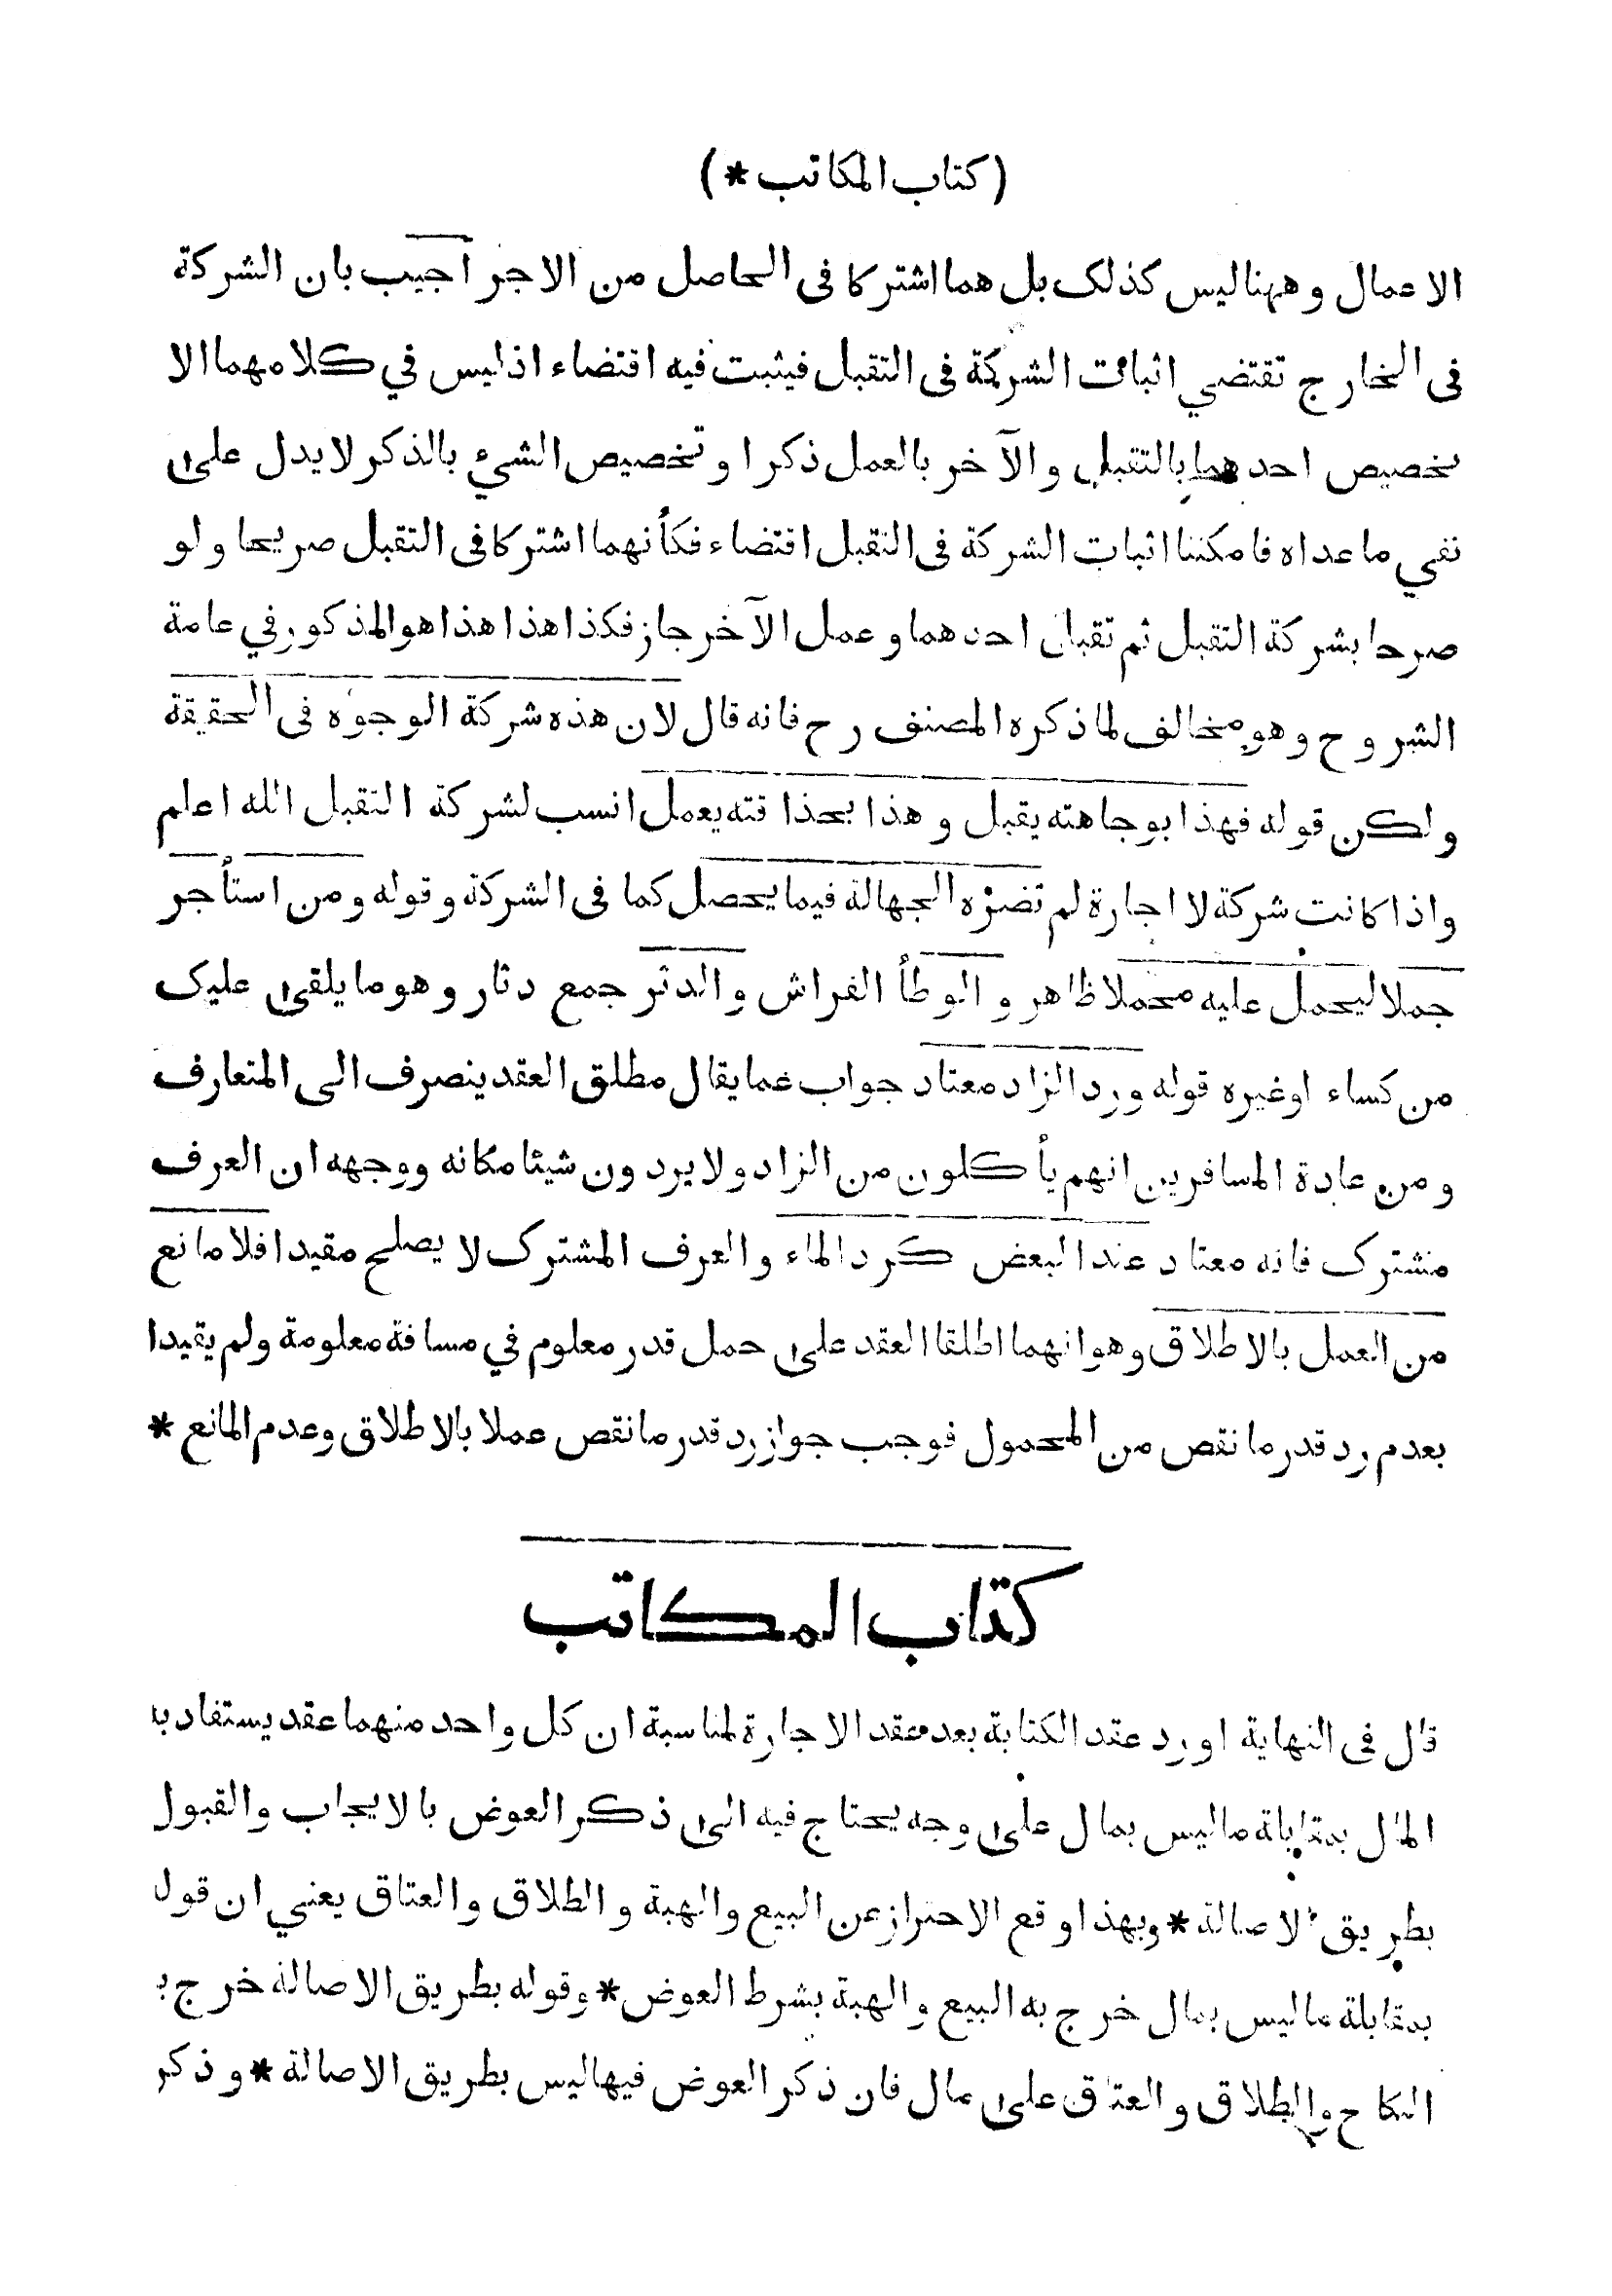 ( كتاب المكاتب * )
الاعمال وههنا ليس كذلك بل هما اشتركا فى الحاصل من الاجر اجيب بان الشركة
فى الخارج تقتضي اثبات الشركة فى التقبل فيثبت فيه اقتضاء اذ ليس في كلامهما الا
تخصيص احدهما بالتقبل والآخر بالعمل ذكرا وتخصيص الشيء بالذكر لا يدل على
نفي ما عداه فامكننا اثبات الشركة فى التقبل اقتضاء فكأنهما اشتركا فى التقبل صريحا ولو
صرحا بشركة التقبل ثم تقبل احدهما وعمل الآخر جاز فكذا هذا هذا هو المذكور في عامة
الشروح وهو مخالف لما ذكره المصنف رح فانه قال لان هذه شركة الوجوه فى الحقيقة
ولكن قوله فهذا بوجاهته يقبل وهذا بحذاقته يعمل انسب لشركة التقبل الله اعلم
واذا كانت شركة لا اجارة لم تضره الجهالة فيما يحصل كما فى الشركة وقوله ومن استأجر
جملا ليحمل عليه محملا ظاهر والوطأ الفراش والدثر جمع دثار وهو ما يلقى عليك
من كساء اوغيره قوله ورد الزاد معتاد جواب عما يقال مطلق العقد ينصرف الى المتعارف
ومن عادة المسافرين انهم يأكلون من الزاد ولا يردون شيئا مكانه ووجهه ان العرف
مشترك فانه معتاد عند البعض كرد الماء والعرف المشترك لا يصلح مقيدا فلا مانع
من العمل بالاطلاق وهو انهما اطلقا العقد على حمل قدر معلوم في مسافة معلومة ولم يقيدا
بعدم رد قدر ما نقص من المحمول فوجب جواز رد قدر ما نقص عملا بالاطلاق وعدم المانع *
كتاب المكاتب
قال فى النهاية اورد عقد الكتابة بعد عقد الاجارة لمناسبة ان كل واحد منهما عقد يستفاد به
المال بمقابلة ما ليس بمال على وجه يحتاج فيه الى ذكر العوض بالايجاب والقبول
بطريق الاصالة * وبهذا وقع الاحتراز عن البيع والهبة والطلاق والعتاق يعني ان قول
بمقابلة ما ليس بمال خرج به البيع والهبة بشرط العوض * وقوله بطريق الاصالة خرج ب
النكاح والطلاق والعتاق على مال فان ذكر العوض فيها ليس بطريق الاصالة * وذكر